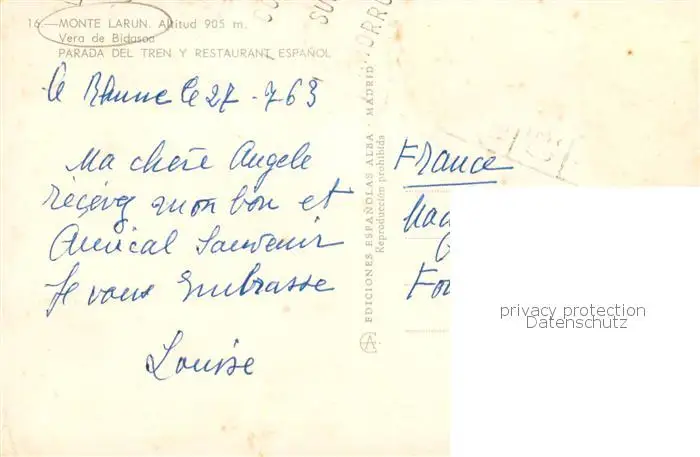 16.—MONTE LARUN. Altitud 905 m.
Vera de Bidasoa
PARADA DEL TREN Y RESTAURANT ESPAÑOL
le Rhune le 27-7 63
Ma chère Angele
recevez mon bon et
Amical Souvenir
Je vous Embrasse
Louise
EDICIONES ESPAÑOLAS ALBA - MADRID
Reproducción prohibida
France
privacy protection
Datenschutz